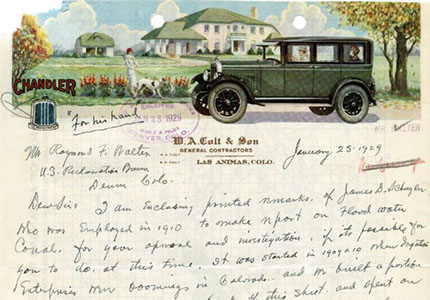 CHANDLER
"For his hand
JAN 23 1929
DENVER, COLO.
MR. WALTER
W. A. Colt & Son
GENERAL CONTRACTORS
W. A. COLT
LAS ANIMAS, COLO.
January 23-1929
Mr Raymond F. Walter
U.S. Reclamation Bureau
Denver Colo.
Dear Sir: I am Enclosing printed remarks of James D. Schuyler
Who was Employed in 1910 to make report on Flood water
Canal. for your approval and investigation, if its possible for
you to do. at this time. It was started in 1909.1910 when Irrigation
Enterprises were booming in Colorado. and We built a portion
this and spent on